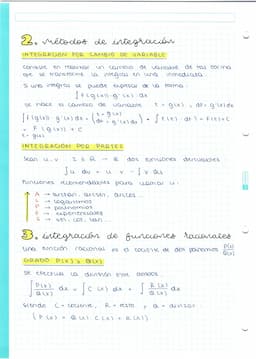 2. métodos de integración
INTEGRACIÓN POR CAMBIO DE VARIABLE
consiste en realizar un cambio de variable de tal forma
que se transforme la integral en una inmediata.
Si una integral se puede expresar de la forma:
∫ f(g(x)) · g'(x) · dx
se hace el cambio de variable t = g(x), dt = g'(x) dx
∫ f(g(x)) · g'(x) · dx = (t = g(x) dt = g'(x) dx) = ∫ f(t) · dt = F(t) + C
= F(g(x)) + C
t = g(x)
INTEGRACIÓN POR PARTES
sean u, v : I ⊆ R → R dos funciones derivables
∫ u · dv = u · v - ∫ v · du
Funciones recomendables para llamar u:
A → arcsen, arccos, arctg...
L → logaritmos
P → polinomios
E → exponenciales
S → sen, cos, tan...
3. integración de funciones racionales
una función racional es el cociente de dos polinomios P(x)/Q(x)
GRADO P(x) ≥ Q(x)
se efectúa la división entre ambos
∫ P(x)/Q(x) dx = ∫ C(x) dx + ∫ R(x)/Q(x) dx
siendo C = cociente, R = resto, y Q = divisor
(P(x) = Q(x) · C(x) + R(x))